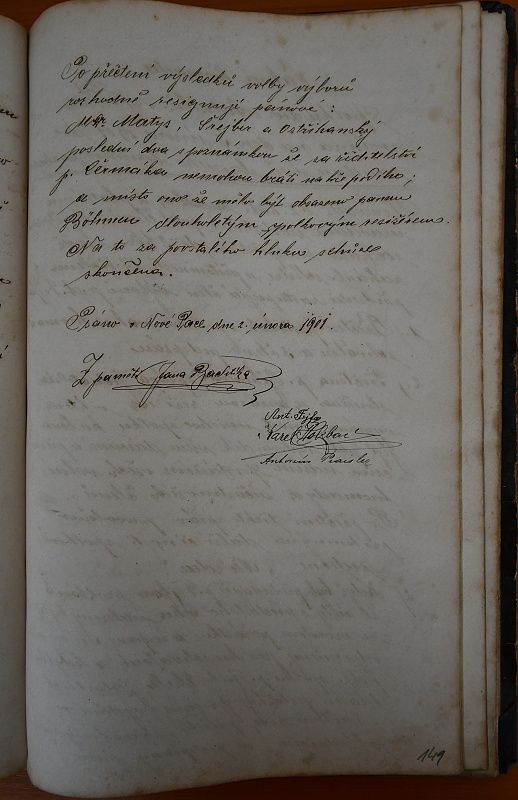 Po přečtení výsledků volby výborů
rozhodně resignují pánové:
MUr Matys, Šrejber a Ostřihanský
poslední dva s poznámkou že za ředitelství
p. Čermáka nemohou bráti na tře podílu;
a místo ono že mělo býti obsazeno panem
Böhmem dlouholetým spolkovým režisérem.
Na to za povstalého hluku schůze
skončena.
Psáno v Nové Pace dne 2. února 1901.
Z paměti Jana
Ant. Fejfar
Karel
Antonín
149